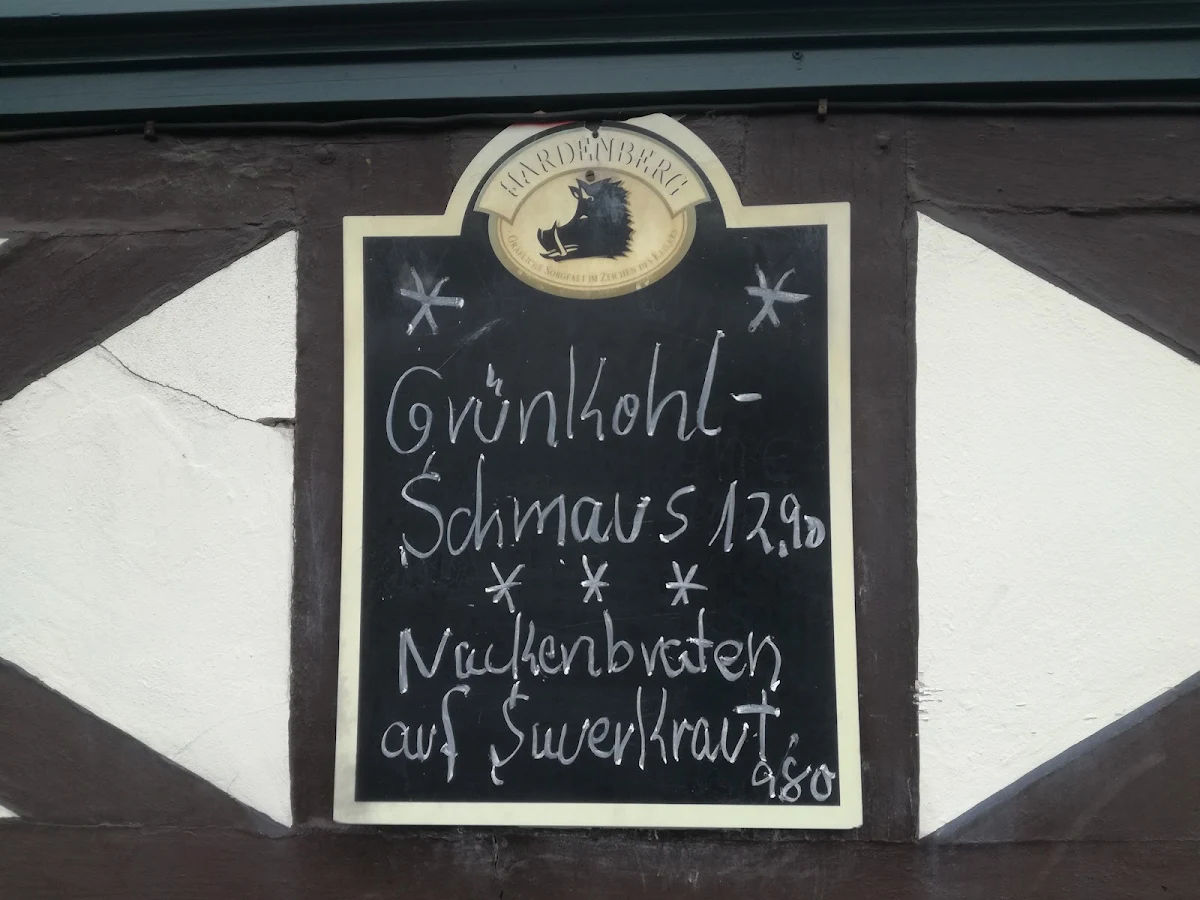 HARDENBERG
GRÄFLICHE SORGFALT IM ZEICHEN DES KEILERS
* *
Grünkohl-
Schmaus 12,90
* * *
Nackenbraten
auf Sauerkraut
9,80